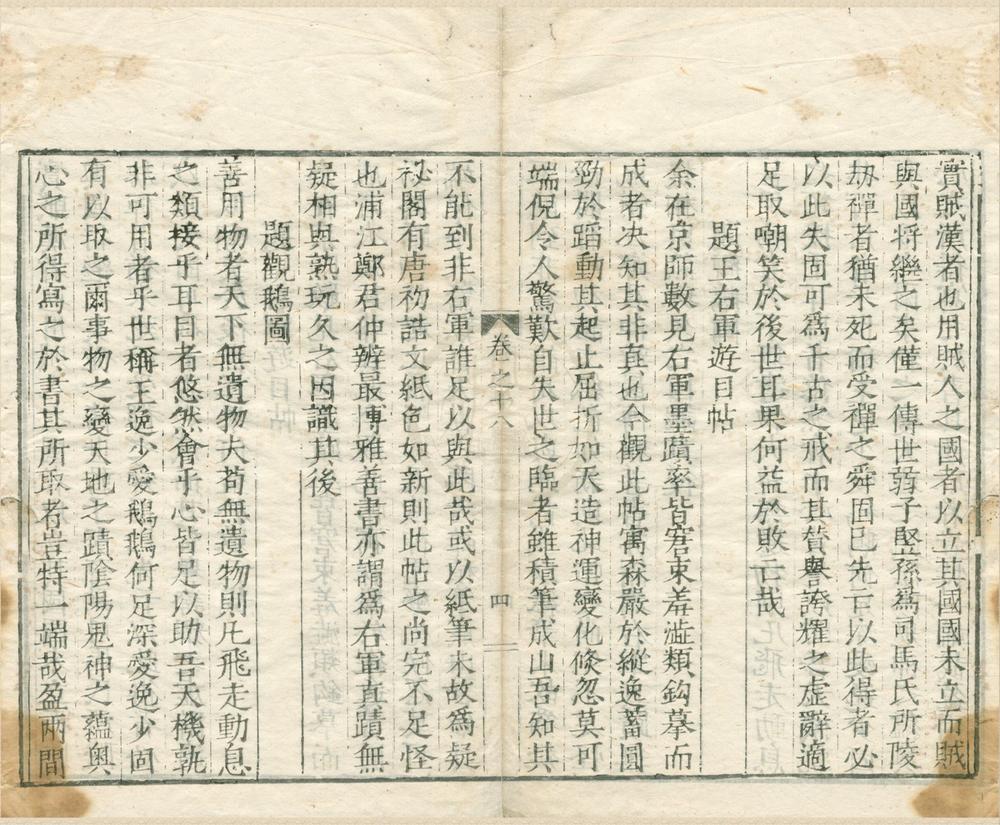 實賊漢者也用賊人之國者以立其國國未立而賊
與國将繼之矣僅一傳世弱子堅孫爲司馬氏所陵
刼禪者猶未死而受禪之舜固已先亡以此得者必
以此失固可爲千古之戒而其賛與誇耀之虚辭適
足取嘲笑於後世耳果何益於敗亡哉
題王右軍遊目帖
余在京師數見右軍墨蹟率皆窘束羞澁類鈎摹而
成者决知其非真也今觀此帖寓森嚴於縱逸蓄圓
勁於蹈動其起止屈折如天造神運變化倐忽莫可
端倪令人驚歎自失世之臨者雖積筆成山吾知其
卷之十八
四
不能到非右軍誰足以與此哉或以紙筆未故爲疑
祕閣有唐初誥文紙色如新則此帖之尚完不足怪
也浦江鄭君仲辨最博雅善書亦謂爲右軍真蹟無
疑相與熟玩久之因識其後
題觀鵝圖
善用物者天下無遺物夫苟無遺物則凡飛走動息
之類接乎耳目者悠然會乎心皆足以助吾天機孰
非可用者乎世稱王逸少愛鵝鵝何足深愛逸少固
有以取之爾事物之變天地之蹟陰陽鬼神之蘊奥
心之所得寫之於書其所取者豈特一端哉盈兩間